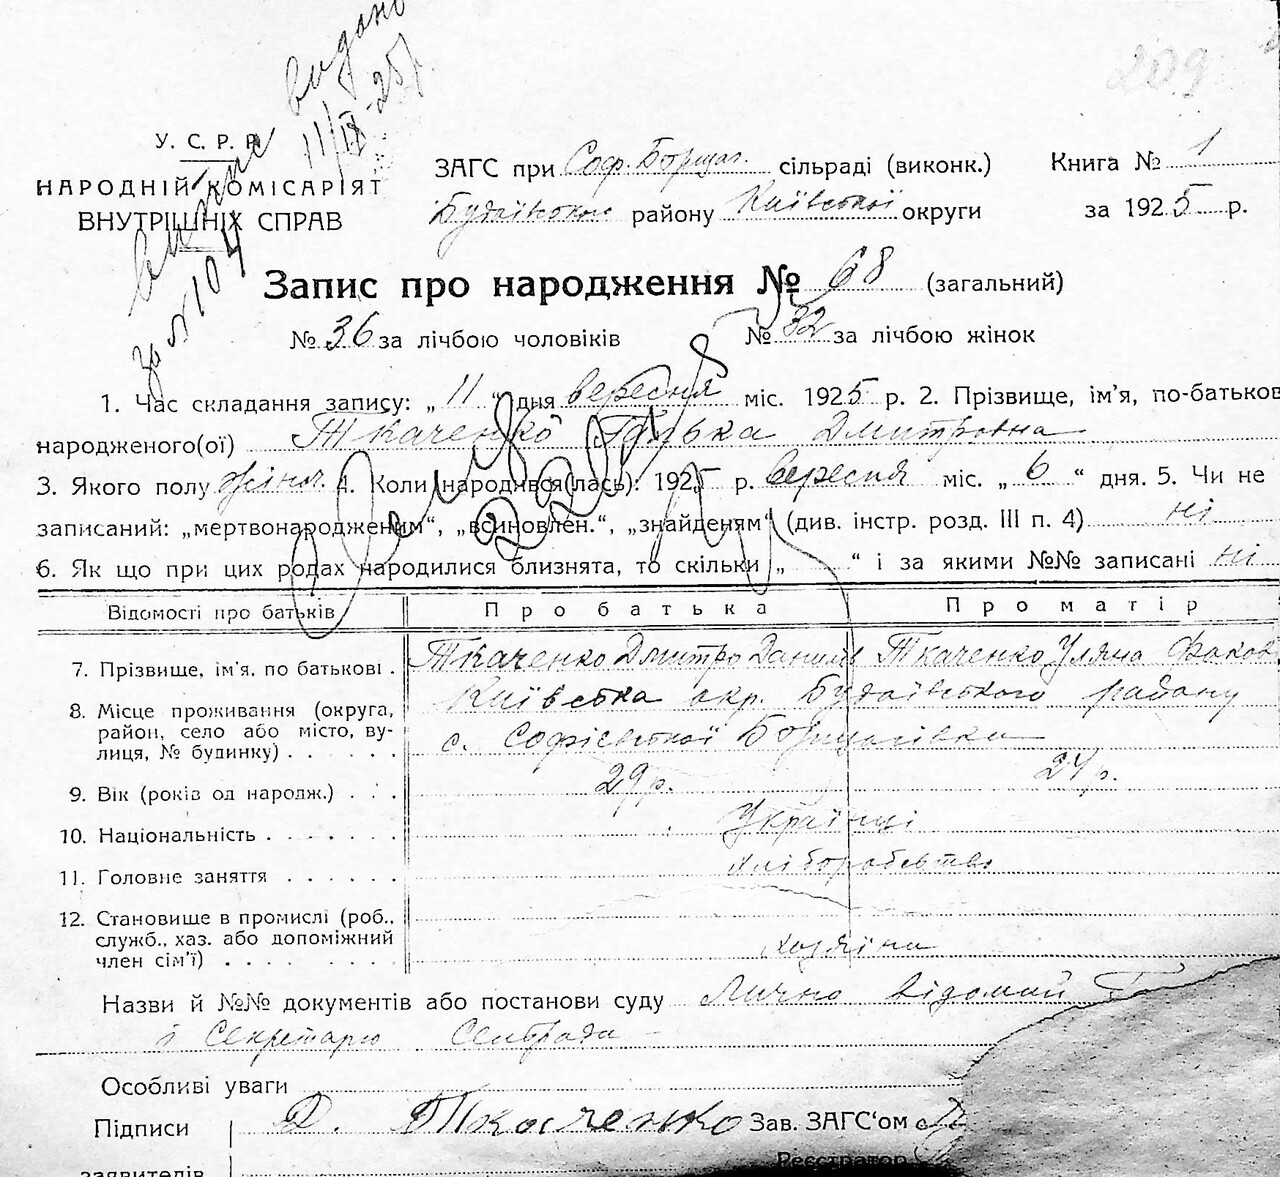 витяг видано
за №104 11/IX-25р.
209
У. С. Р. Р.
НАРОДНІЙ КОМІСАРІЯТ
ВНУТРІШНІХ СПРАВ
ЗАГС при Соф. Борщаг. сільраді (виконк.)
Будаївського району Київської округи
Книга № 1
за 1925 р.
Запис про народження № 68 (загальний)
№ 36 за лічбою чоловіків № 32 за лічбою жінок
1. Час складання запису: „11“ дня вересня міс. 1925 р. 2. Прізвище, ім'я, по-батькові
народженого(ої) Ткаченко Галька Дмитровна
3. Якого полу жіноч. 4. Коли народився(лась): 1925 р. вересня міс. „6“ дня. 5. Чи не
записаний: „мертвонародженим“, „всиновлен.“, „знайденям“ (див. інстр. розд. III п. 4) ні
6. Як що при цих родах народилися близнята, то скільки „ “ і за якими №№ записані ні
Відомості про батьків Про батька Про матір
7. Прізвище, ім'я, по батькові . Ткаченко Дмитро Данилів Ткаченко Уляна
8. Місце проживання (округа, район, село або місто, вулиця, № будинку) . . . . Київська окр. Будаївського району
с. Софієвської Борщагівки
9. Вік (років од народж.) . . . 29 р. 24 р.
10. Національність . . . . . . . Українці
11. Головне заняття . . . . . . хліборобство
12. Становище в промислі (роб.,
служб., хаз. або допоміжний
член сім'ї) . . . . . . . . . хазяїна
Назви й №№ документів або постанови суду Лично відомий
і Секретарю Сельради
Особливі уваги
Підписи Д. Ткаченко Зав. ЗАГС'ом
заявителів Реєстратор